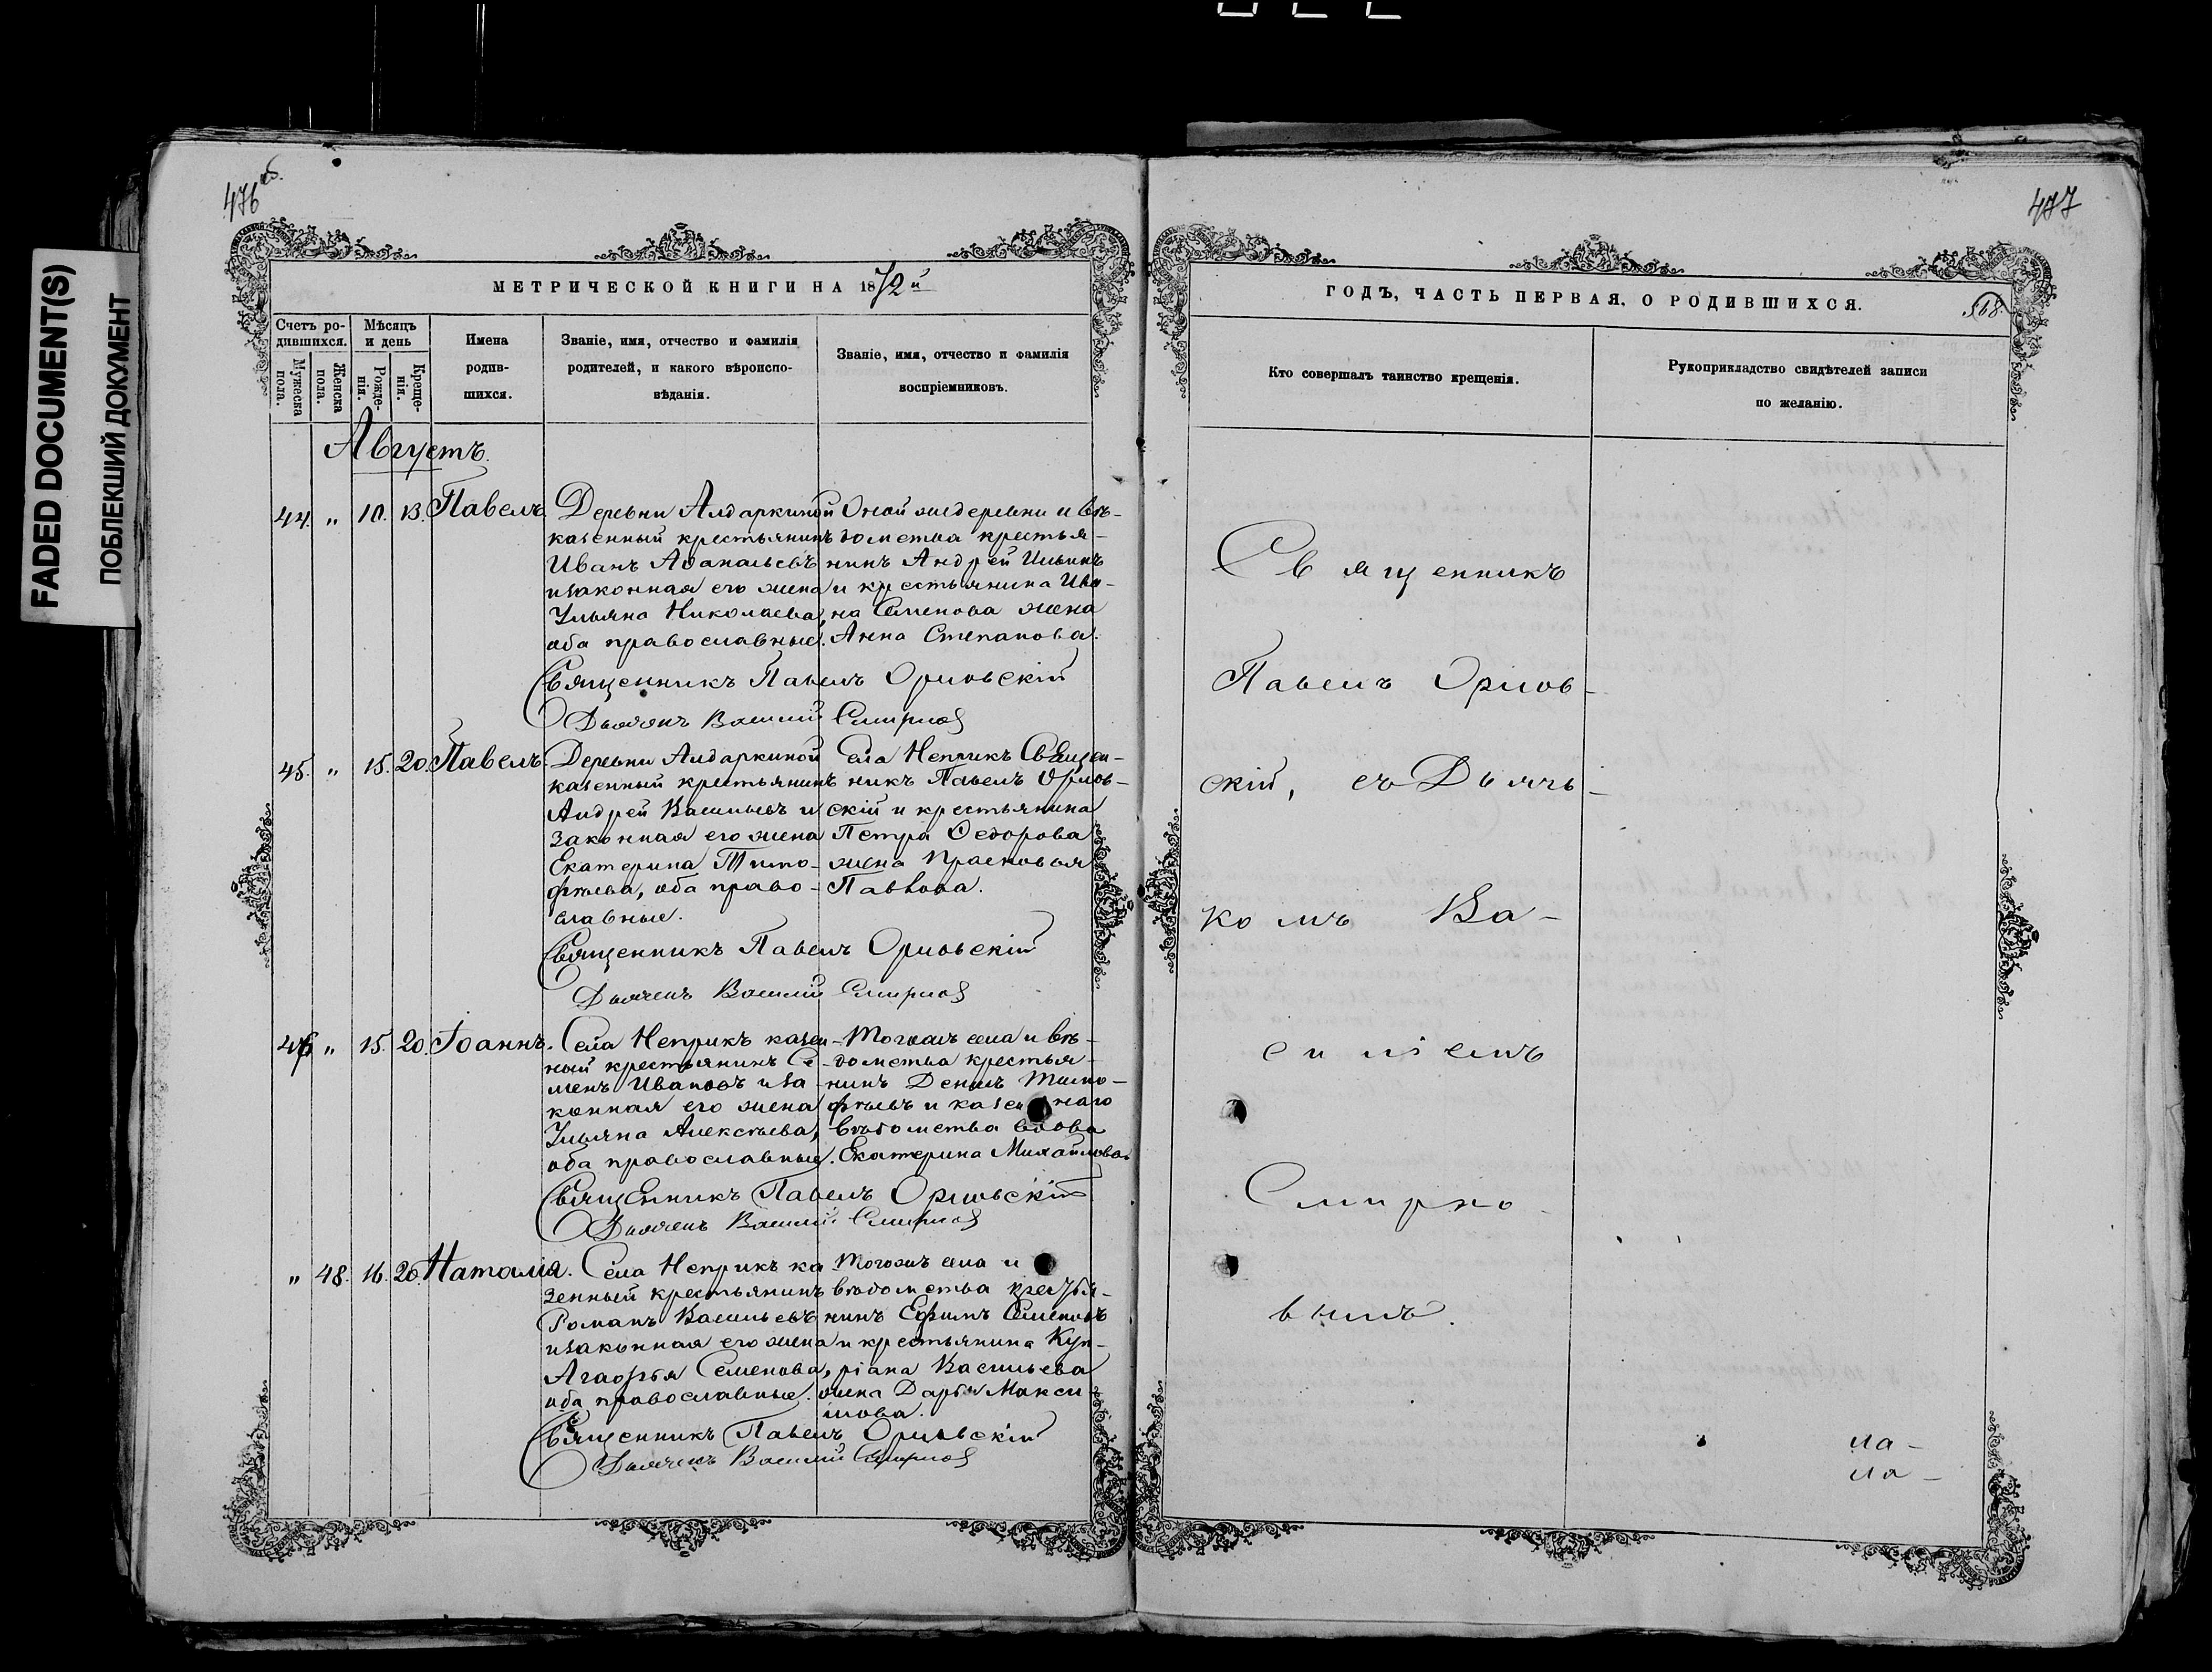 FADED DOCUMENT(S)
ПОБЛЕКШИЙ ДОКУМЕНТ
476 об.
МЕТРИЧЕСКОЙ КНИГИ НА 1872й
Счетъ ро-
дившихся.
Мужеска
пола.
Женска
пола.
Мѣсяцъ
и день
Рожде-
нія.
Креще-
нія.
Имена
родив-
шихся.
Званіе, имя, отчество и фамилія
родителей, и какого вѣроиспо-
вѣданія.
Званіе, имя, отчество и фамилія
воспріемниковъ.
Августъ.
44. " 10. 13. Павелъ.
Деревни Алдаркиной
казенный крестьянинъ
Иванъ Аѳанасьевъ
и законная его жена
Ульяна Николаева,
оба православные.
Оной же деревни и вѣ-
домства крестья-
нинъ Андрей Ильинъ
и крестьянина Ива-
на Семенова жена
Анна Степанова.
Священникъ Павелъ Орловскій
Дьячекъ Василій Смирновъ
45. " 15. 20. Павелъ.
Деревни Алдаркиной
казенный крестьянинъ
Андрей Васильевъ и
законная его жена
Екатерина Тимо-
фѣева, оба право-
славные.
Села Неприкъ Священ-
никъ Павелъ Орлов-
скій и крестьянина
Петра Ѳедорова
жена Прасковья
Павлова.
Священникъ Павелъ Орловскій
Дьячекъ Василій Смирновъ
46 " 15. 20. Іоаннъ.
Села Неприкъ казен-
ный крестьянинъ Се-
менъ Ивановъ и за-
конная его жена
Ульяна Алексѣева,
оба православные.
Тогожъ села и вѣ-
домства крестья-
нинъ Денисъ Тимо-
фѣевъ и казеннаго
вѣдомства вдова
Екатерина Михайлова.
Священникъ Павелъ Орловскій
Дьячекъ Василій Смирновъ
" 48. 16. 20. Наталія.
Села Неприкъ ка-
зенный крестьянинъ
Романъ Васильевъ
и законная его жена
Агаѳья Семенова,
оба православные.
Тогожъ села и
вѣдомства крестья-
нинъ Ефимъ Семеновъ
и крестьянина Куп-
ріана Васильева
жена Дарья Макси-
мова.
Священникъ Павелъ Орловскій
Дьячекъ Василій Смирновъ
477
ГОДЪ, ЧАСТЬ ПЕРВАЯ. О РОДИВШИХСЯ.
568.
Кто совершалъ таинство крещенія.
Рукоприкладство свидѣтелей записи
по желанію.
Священникъ
Павелъ Орлов-
скій, съ Дьяч-
комъ Ва-
силіемъ
Смирно-
вымъ.
ла-
ла-